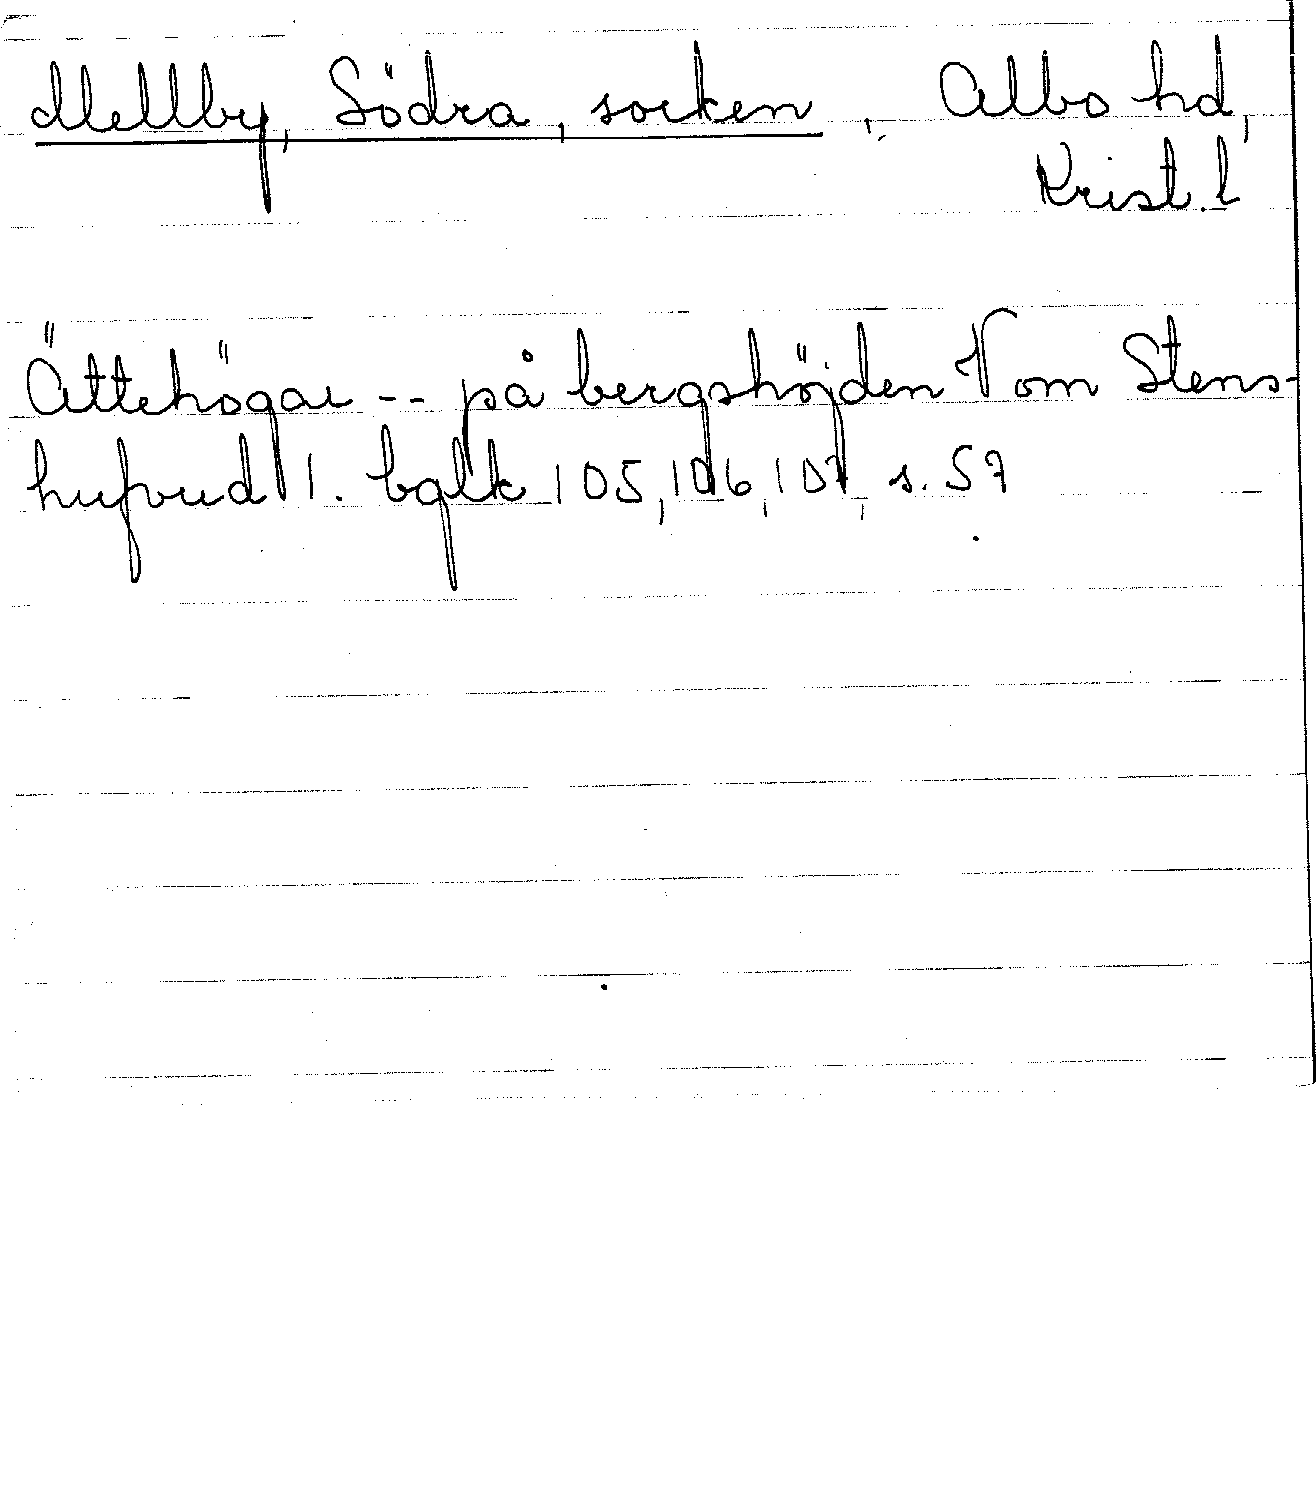 Mellby, Södra, socken, Albo hd,
Krist. l
Ättehögar -- på bergshöjden V om Stens-
hufvud 1. bglk 105, 106, 107, s. 57